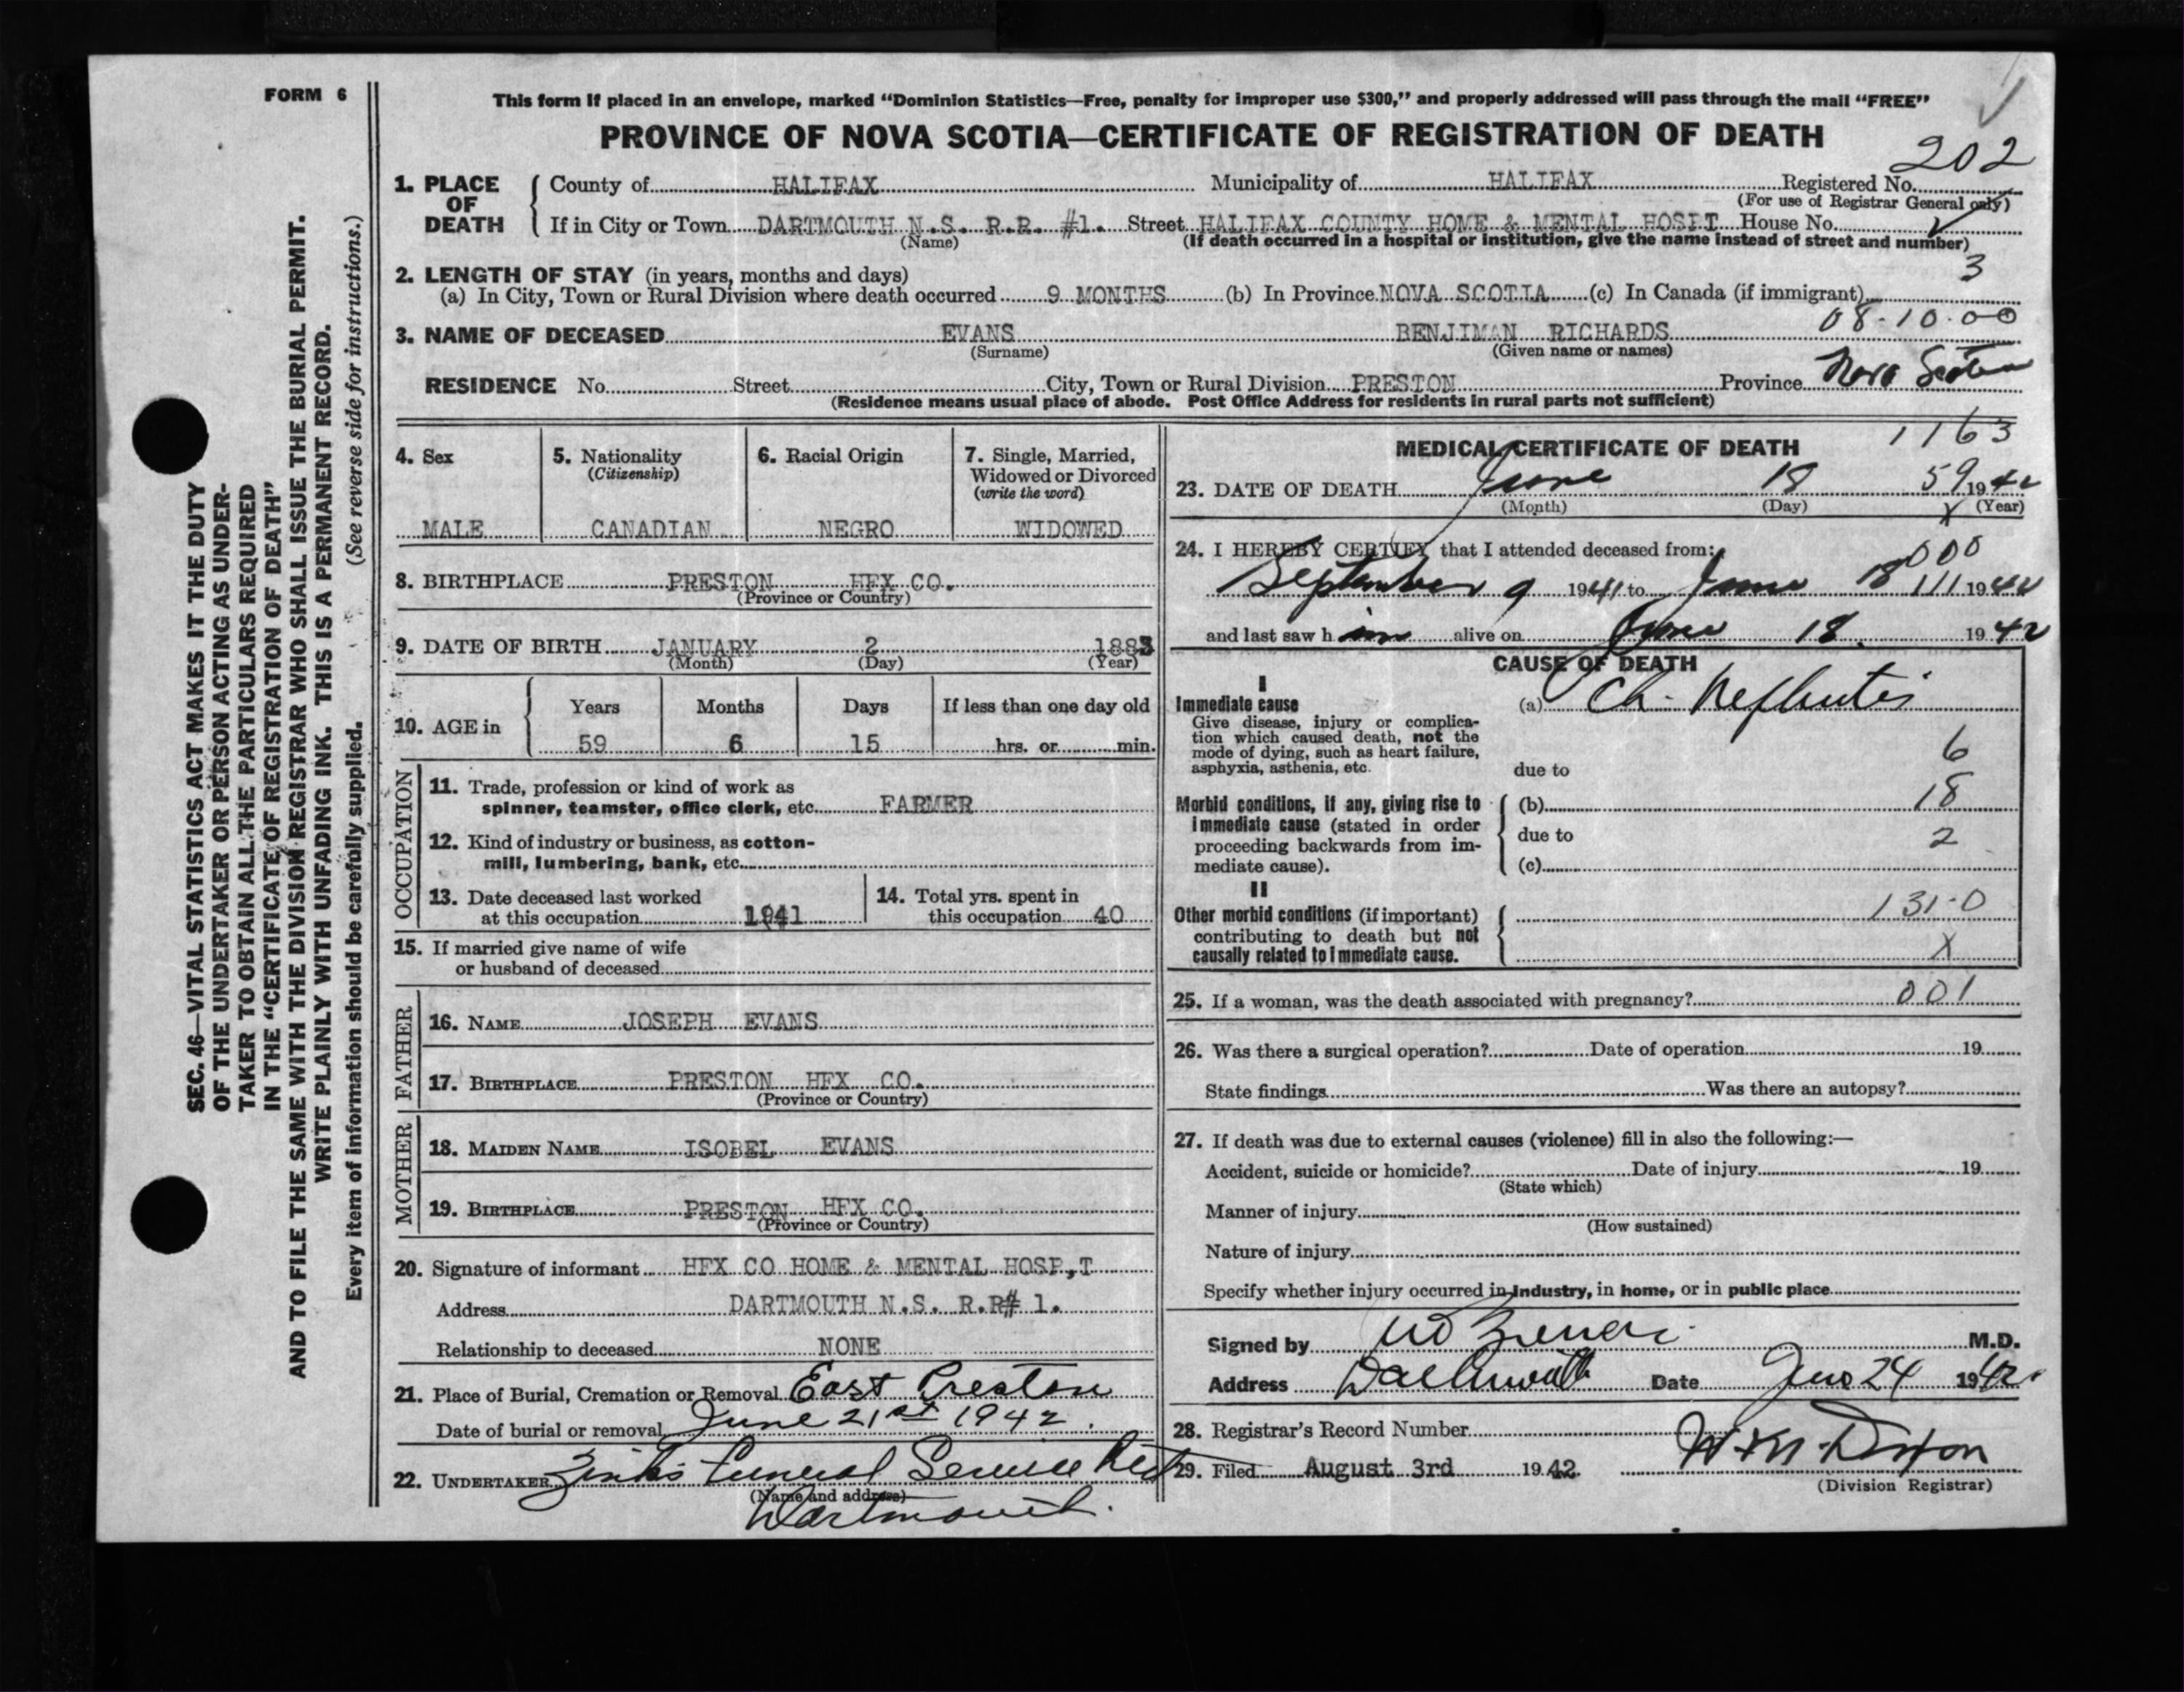 FORM 6
This form if placed in an envelope, marked “Dominion Statistics—Free, penalty for improper use $300,” and properly addressed will pass through the mail “FREE”
PROVINCE OF NOVA SCOTIA—CERTIFICATE OF REGISTRATION OF DEATH
202
1. PLACE OF DEATH { County of HALIFAX Municipality of HALIFAX Registered No.
(For use of Registrar General only)
If in City or Town DARTMOUTH N.S. R.R. #1. Street HALIFAX COUNTY HOME & MENTAL HOSPT House No.
(Name) (If death occurred in a hospital or institution, give the name instead of street and number)
2. LENGTH OF STAY (in years, months and days) 3
(a) In City, Town or Rural Division where death occurred 9 MONTHS (b) In Province NOVA SCOTIA (c) In Canada (if immigrant)
08-10-00
3. NAME OF DECEASED EVANS BENJIMAN RICHARDS
(Surname) (Given name or names)
RESIDENCE No. Street City, Town or Rural Division PRESTON Province Nova Scotia
(Residence means usual place of abode. Post Office Address for residents in rural parts not sufficient)
4. Sex
MALE
5. Nationality
(Citizenship)
CANADIAN
6. Racial Origin
NEGRO
7. Single, Married,
Widowed or Divorced
(write the word)
WIDOWED
8. BIRTHPLACE PRESTON HFX CO.
(Province or Country)
9. DATE OF BIRTH JANUARY 2 1883
(Month) (Day) (Year)
10. AGE in { Years Months Days If less than one day old
59 6 15 hrs. or min.
OCCUPATION
11. Trade, profession or kind of work as
spinner, teamster, office clerk, etc. FARMER
12. Kind of industry or business, as cotton-
mill, lumbering, bank, etc.
13. Date deceased last worked
at this occupation 1941
14. Total yrs. spent in
this occupation 40
15. If married give name of wife
or husband of deceased
FATHER
16. NAME JOSEPH EVANS
17. BIRTHPLACE PRESTON HFX CO.
(Province or Country)
MOTHER
18. MAIDEN NAME ISOBEL EVANS
19. BIRTHPLACE PRESTON HFX CO.
(Province or Country)
20. Signature of informant HFX CO HOME & MENTAL HOSP,T
Address DARTMOUTH N.S. R.R# 1.
Relationship to deceased NONE
21. Place of Burial, Cremation or Removal East Preston
Date of burial or removal June 21st 1942.
22. UNDERTAKER Zink's Funeral Service
(Name and address)
Dartmouth.
1163
MEDICAL CERTIFICATE OF DEATH
23. DATE OF DEATH June 18 59 1942
(Month) (Day) X (Year)
24. I HEREBY CERTIFY that I attended deceased from:
000
September 9 1941 to June 18 111 1942
and last saw him alive on June 18. 1942
CAUSE OF DEATH
I
Immediate cause (a) Ch. Nephritis
Give disease, injury or complica-
tion which caused death, not the
mode of dying, such as heart failure,
asphyxia, asthenia, etc. due to 6
Morbid conditions, if any, giving rise to (b) 18
immediate cause (stated in order due to 2
proceeding backwards from im-
mediate cause). (c)
II
Other morbid conditions (if important) 131-0
contributing to death but not
causally related to immediate cause. X
25. If a woman, was the death associated with pregnancy? 001
26. Was there a surgical operation? Date of operation 19
State findings Was there an autopsy?
27. If death was due to external causes (violence) fill in also the following:—
Accident, suicide or homicide? Date of injury 19
(State which)
Manner of injury
(How sustained)
Nature of injury
Specify whether injury occurred in industry, in home, or in public place
Signed by M.D.
Address Dartmouth Date June 24 1942.
28. Registrar's Record Number
29. Filed August 3rd 1942
(Division Registrar)
SEC. 46—VITAL STATISTICS ACT MAKES IT THE DUTY
OF THE UNDERTAKER OR PERSON ACTING AS UNDER-
TAKER TO OBTAIN ALL THE PARTICULARS REQUIRED
IN THE “CERTIFICATE OF REGISTRATION OF DEATH”
AND TO FILE THE SAME WITH THE DIVISION REGISTRAR WHO SHALL ISSUE THE BURIAL PERMIT.
WRITE PLAINLY WITH UNFADING INK. THIS IS A PERMANENT RECORD.
Every item of information should be carefully supplied. (See reverse side for instructions.)